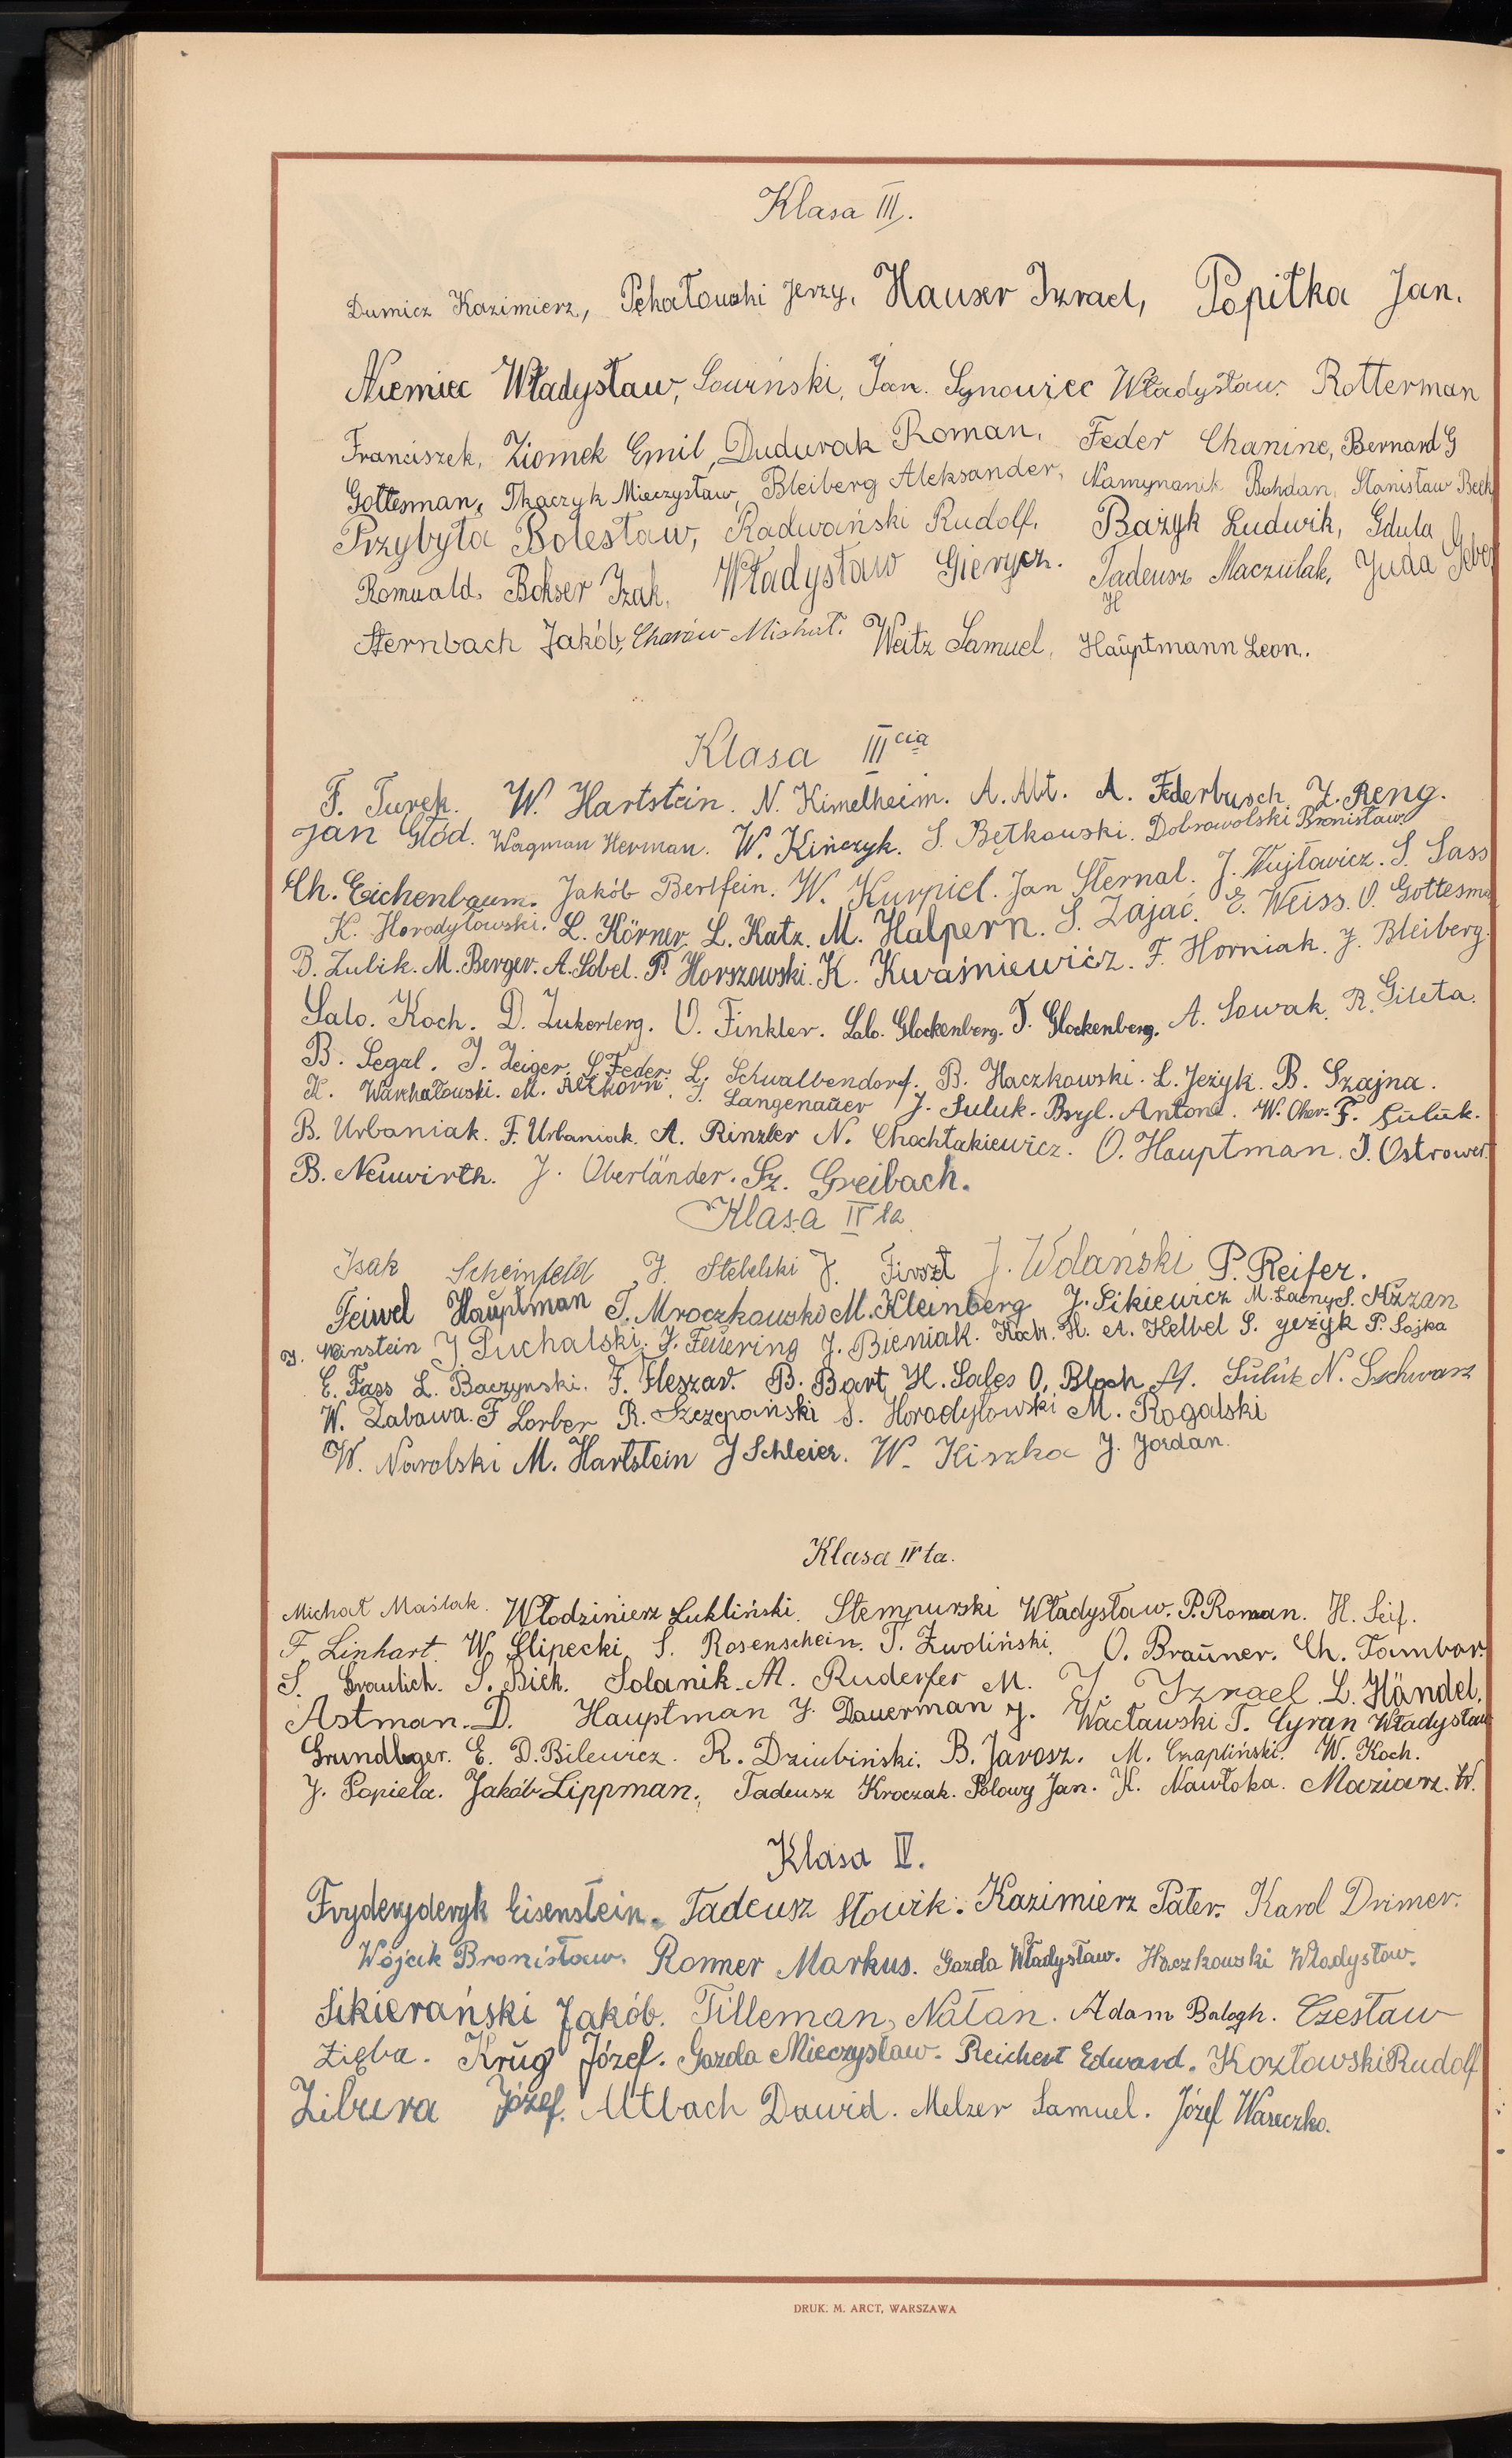 Klasa III.
Dumicz Kazimierz, Pchałowski Jerzy, Hauser Izrael, Popiłka Jan.
Niemiec Władysław, Sowiński, Jan. Synowiec Władysław. Rotterman
Franciszek, Ziomek Emil, Dudurak Roman, Feder Chanine, Bernard G
Gottesman, Tkaczyk Mieczysław, Bleiberg Aleksander, Namynanik Bohdan, Stanisław Beck
Przybyła Bolesław, Radwański Rudolf, Bażyk Ludwik, Gdula
Romuald, Bokser Izak, Władysław Gierycz. Tadeusz Maczulak, Juda Geber
H
Sternbach Jakób, Charów Michał. Weitz Samuel, Hauptmann Leon.
Klasa III cia
F. Turek. W. Hartstein. N. Kimelheim. A. Alt. A. Federbusch. Z. Reng.
Jan Głód. Wagman Herman. W. Kińczyk. S. Bętkowski. Dobrowolski Bronisław.
Ch. Eichenbaum. Jakób Bertfein. W. Kurpiel. Jan Sternal. J. Wujtowicz. S. Sass
K. Horodyłowski. L. Körner. L. Katz. M. Halpern. S. Zając. E. Weiss. O. Gottesma
B. Zulik. M. Berger. A. Sobel. P. Horszowski. K. Kwaśniewićz. F. Horniak. J. Bleiberg.
Salo. Koch. D. Zukerberg. O. Finkler. Salo. Glockenberg. T. Glockenberg. A. Sowak. R. Gileta.
B. Segal. J. Zeiger. S. Feder. L. Schwalbendorf. B. Haczkowski. L. Jeżyk. B. Szajna.
K. Warchałowski. M. Altkorn. J. Langenauer J. Suluk. Bryl. Antoni. W. Ober. F. Suluk.
B. Urbaniak. F. Urbaniak. A. Rinzler N. Chochłakiewicz. O. Hauptman. J. Ostrower.
B. Neuwirth. J. Oberländer. Sz. Greibach.
Klasa IV ta
Isak Scheinfeld J. Stebelski J. Firszt J. Wdański P. Reifer.
Feiwel Hauptman T. Mroczkowski M. Kleinberg J. Sikiewicz M. Ładny S. Hüzan
J. Weinstein J. Puchalski. J. Feuering J. Bieniak. Koch. H. A. Helbel S. Jeżyk P. Sojka
E. Fass L. Baczynski. F. Fleszar. B. Bart H. Sales O. Bloch M. Suluk N. Schwarz
W. Zabawa. F Lorber R. Szczepański S. Horodyłowski M. Rogalski
W. Narolski M. Hartstein J Schleier. W. Kiszka J. Jordan.
Klasa IV ta.
Michał Maślak. Włodzimierz Łukliński. Stempurski Władysław. P. Roman. H. Seif.
F. Linhart. W. Slipecki. S. Rosenschein. T. Zwoliński. O. Brauner. Ch. Tambor.
S. Graulich. S. Biek. Solanik. M. Ruderfer M. J. Izrael. L. Händel.
Astman. D. Hauptman J. Dauerman J. Wacławski T. Cyran Władysław
Grundleger. E. D. Bilewicz. R. Dziubiński. B. Jarosz. M. Czapliński. W. Koch.
J. Popiela. Jakób Lippman. Tadeusz Kroczak. Połowy Jan. K. Nawłoka. Maziarz. W.
Klasa IV.
Fryderyderyk Eisenstein. Tadeusz Słowik. Kazimierz Pater. Karol Drimer.
Wójcik Bronisław. Ronner Markus. Gazda Władysław. Haczkowski Władysław.
Sikierański Jakób. Tilleman, Natan. Adam Balogh. Czesław
Zięba. Krug Józef. Gazda Mieczysław. Reichert Edward. Kozłowski Rudolf
Zibura Józef. Altbach Dawid. Melzer Samuel. Józef Wareczko.
DRUK. M. ARCT, WARSZAWA